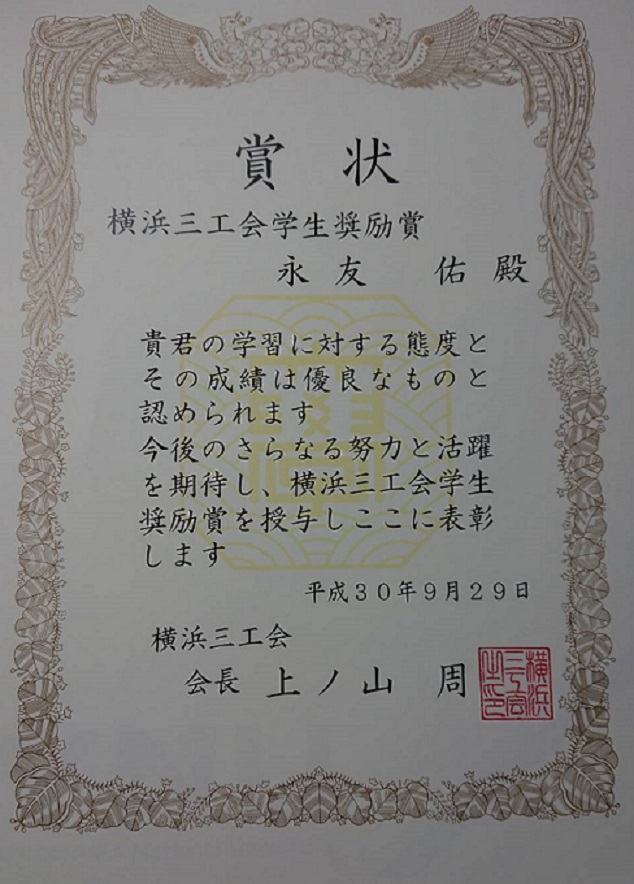 賞 状
横浜三工会学生奨励賞
永 友 佑 殿
貴君の学習に対する態度と
その成績は優良なものと
認められます
今後のさらなる努力と活躍
を期待し、横浜三工会学生
奨励賞を授与しここに表彰
します
平成30年9月29日
横浜三工会
会長 上ノ山 周
横浜
三工会
之印